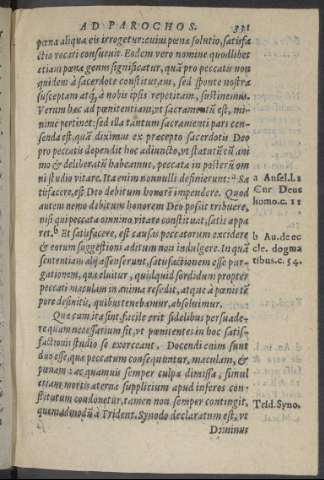 AD PAROCHOS. 331
pœna aliqua eis irrogetur: cuius pœna solutio, satisfa
ctio vocari consueuit. Eodem vero nomine quodlibet
etiam pœnæ genus significatur, quã pro peccatis non
quidem à sacerdote constitutam, sed sponte nostra
susceptam atq́; à nobis ipsis repetitam, sustinemus.
Verum hæc ad pœnitentiam, vt sacramentũ est, mi-
nime pertinet: sed illa tãntum sacramenti pars cen-
senda est, quã diximus ex præcepto sacerdotis Deo
pro peccatis dependi: hoc adiuncto, vt statutũ cũ ani
mo & deliberatũ habeamus, peccata in posterũ om
ni studio vitare. Ita enim nonnulli definierunt: ᵃ Sa
tisfacere, est Deo debitum honorẽ impendere. Quod
autem nemo debitum honorem Deo possit tribuere,
nisi qui peccata omnino vitare constituat, satis appa
ret. ᵇ Et satisfacere, est causas peccatorum excidere
& eorum suggestioni aditum non indulgere. In quã
sententiam alij assenserunt, satisfactionem esse pur-
gationem, qua eluitur, quidquid sordidum propter
peccati maculam in anima resedit, atque à pœnis tẽ
pore definitis, quibus tenebamur, absoluimur.
Quæ cum ita sint, facile erit fidelibus persuade-
re quam necessarium sit, vt pœnitentes in hoc satis-
factionis studio se exerceant. Docendi enim sunt
duo esse, quæ peccatum consequuntur, maculam, &
pœnam: ac quamuis semper culpa dimissa, simul
etiam mortis æternæ supplicium apud inferos con-
stitutum condonetur, tamen non semper contingit,
quemadmodũ à Trident. Synodo declaratum est, vt
Dominus
a Ansel. l. 1
Cur Deus
homo. c. 11
b Au. de ec
cle. dogma
tibus. c. 54.
Trid. Syno.